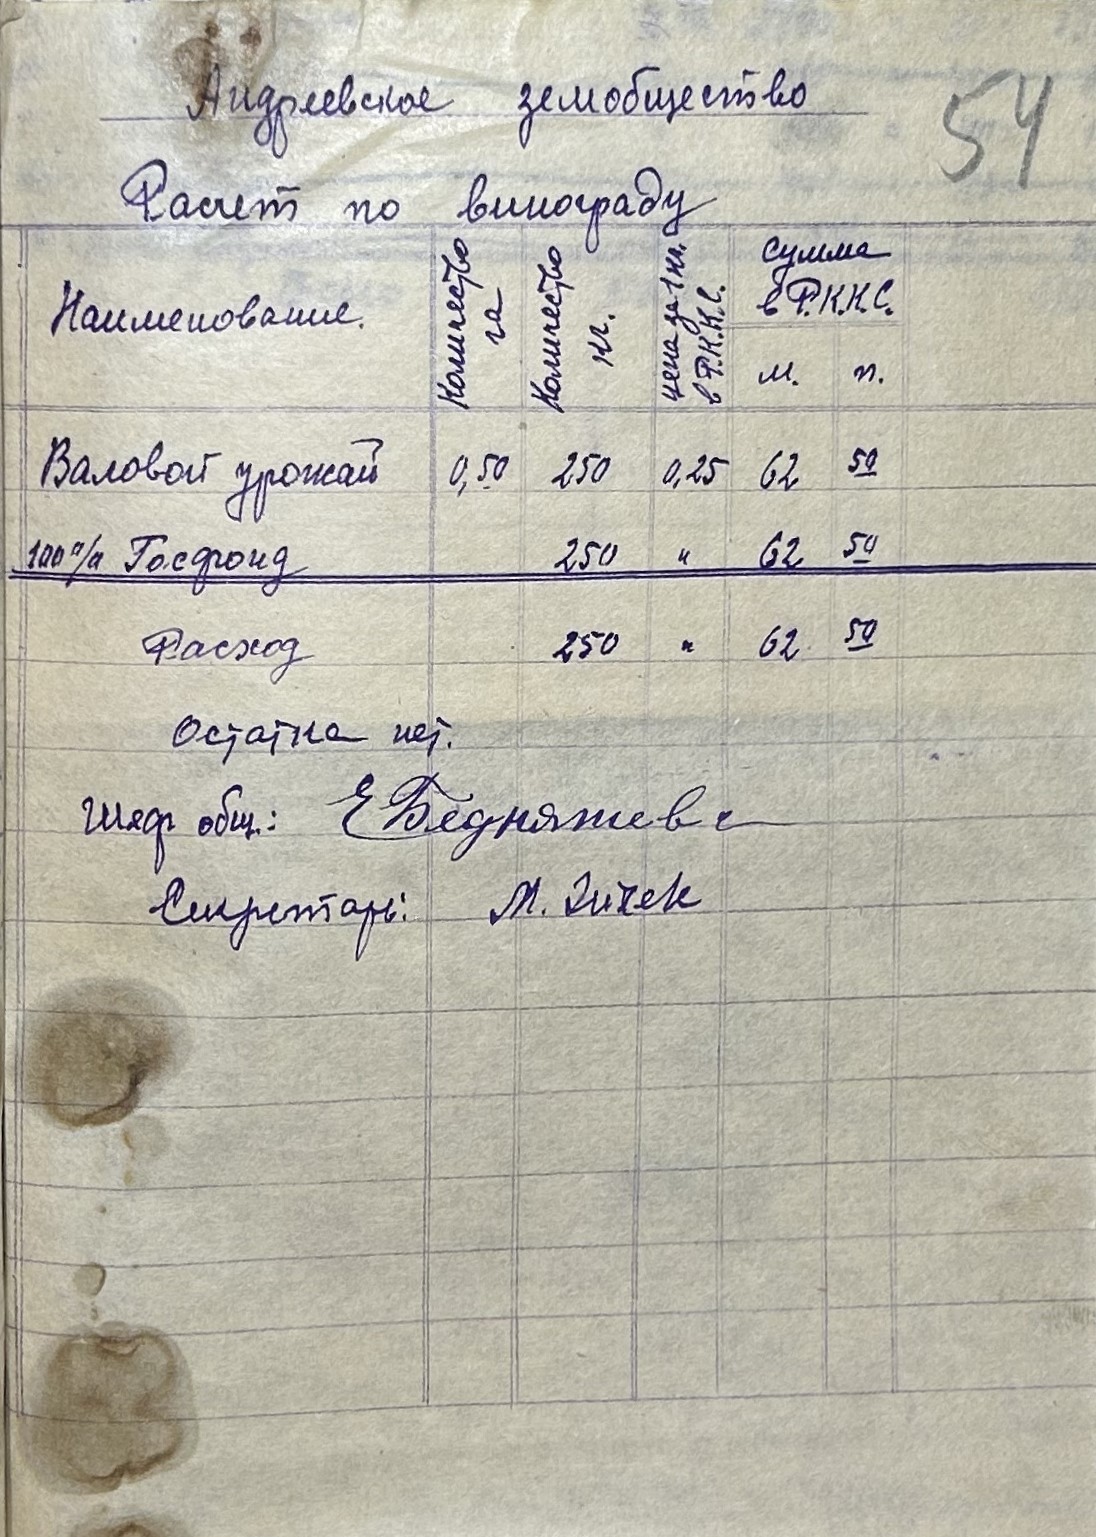 Андреевское земобщество
54
Расчет по винограду
Наименование. Количество га Количество кг. цена за 1 кг. в Р.К.К.С. сумма в Р.К.К.С.
м. п.
Валовой урожай 0,50 250 0,25 62 50
100% Госфонд 250 " 62 50
Расход 250 " 62 50
Остатка нет.
Шеф общ.: Е Бедняжев
Секретарь: М.